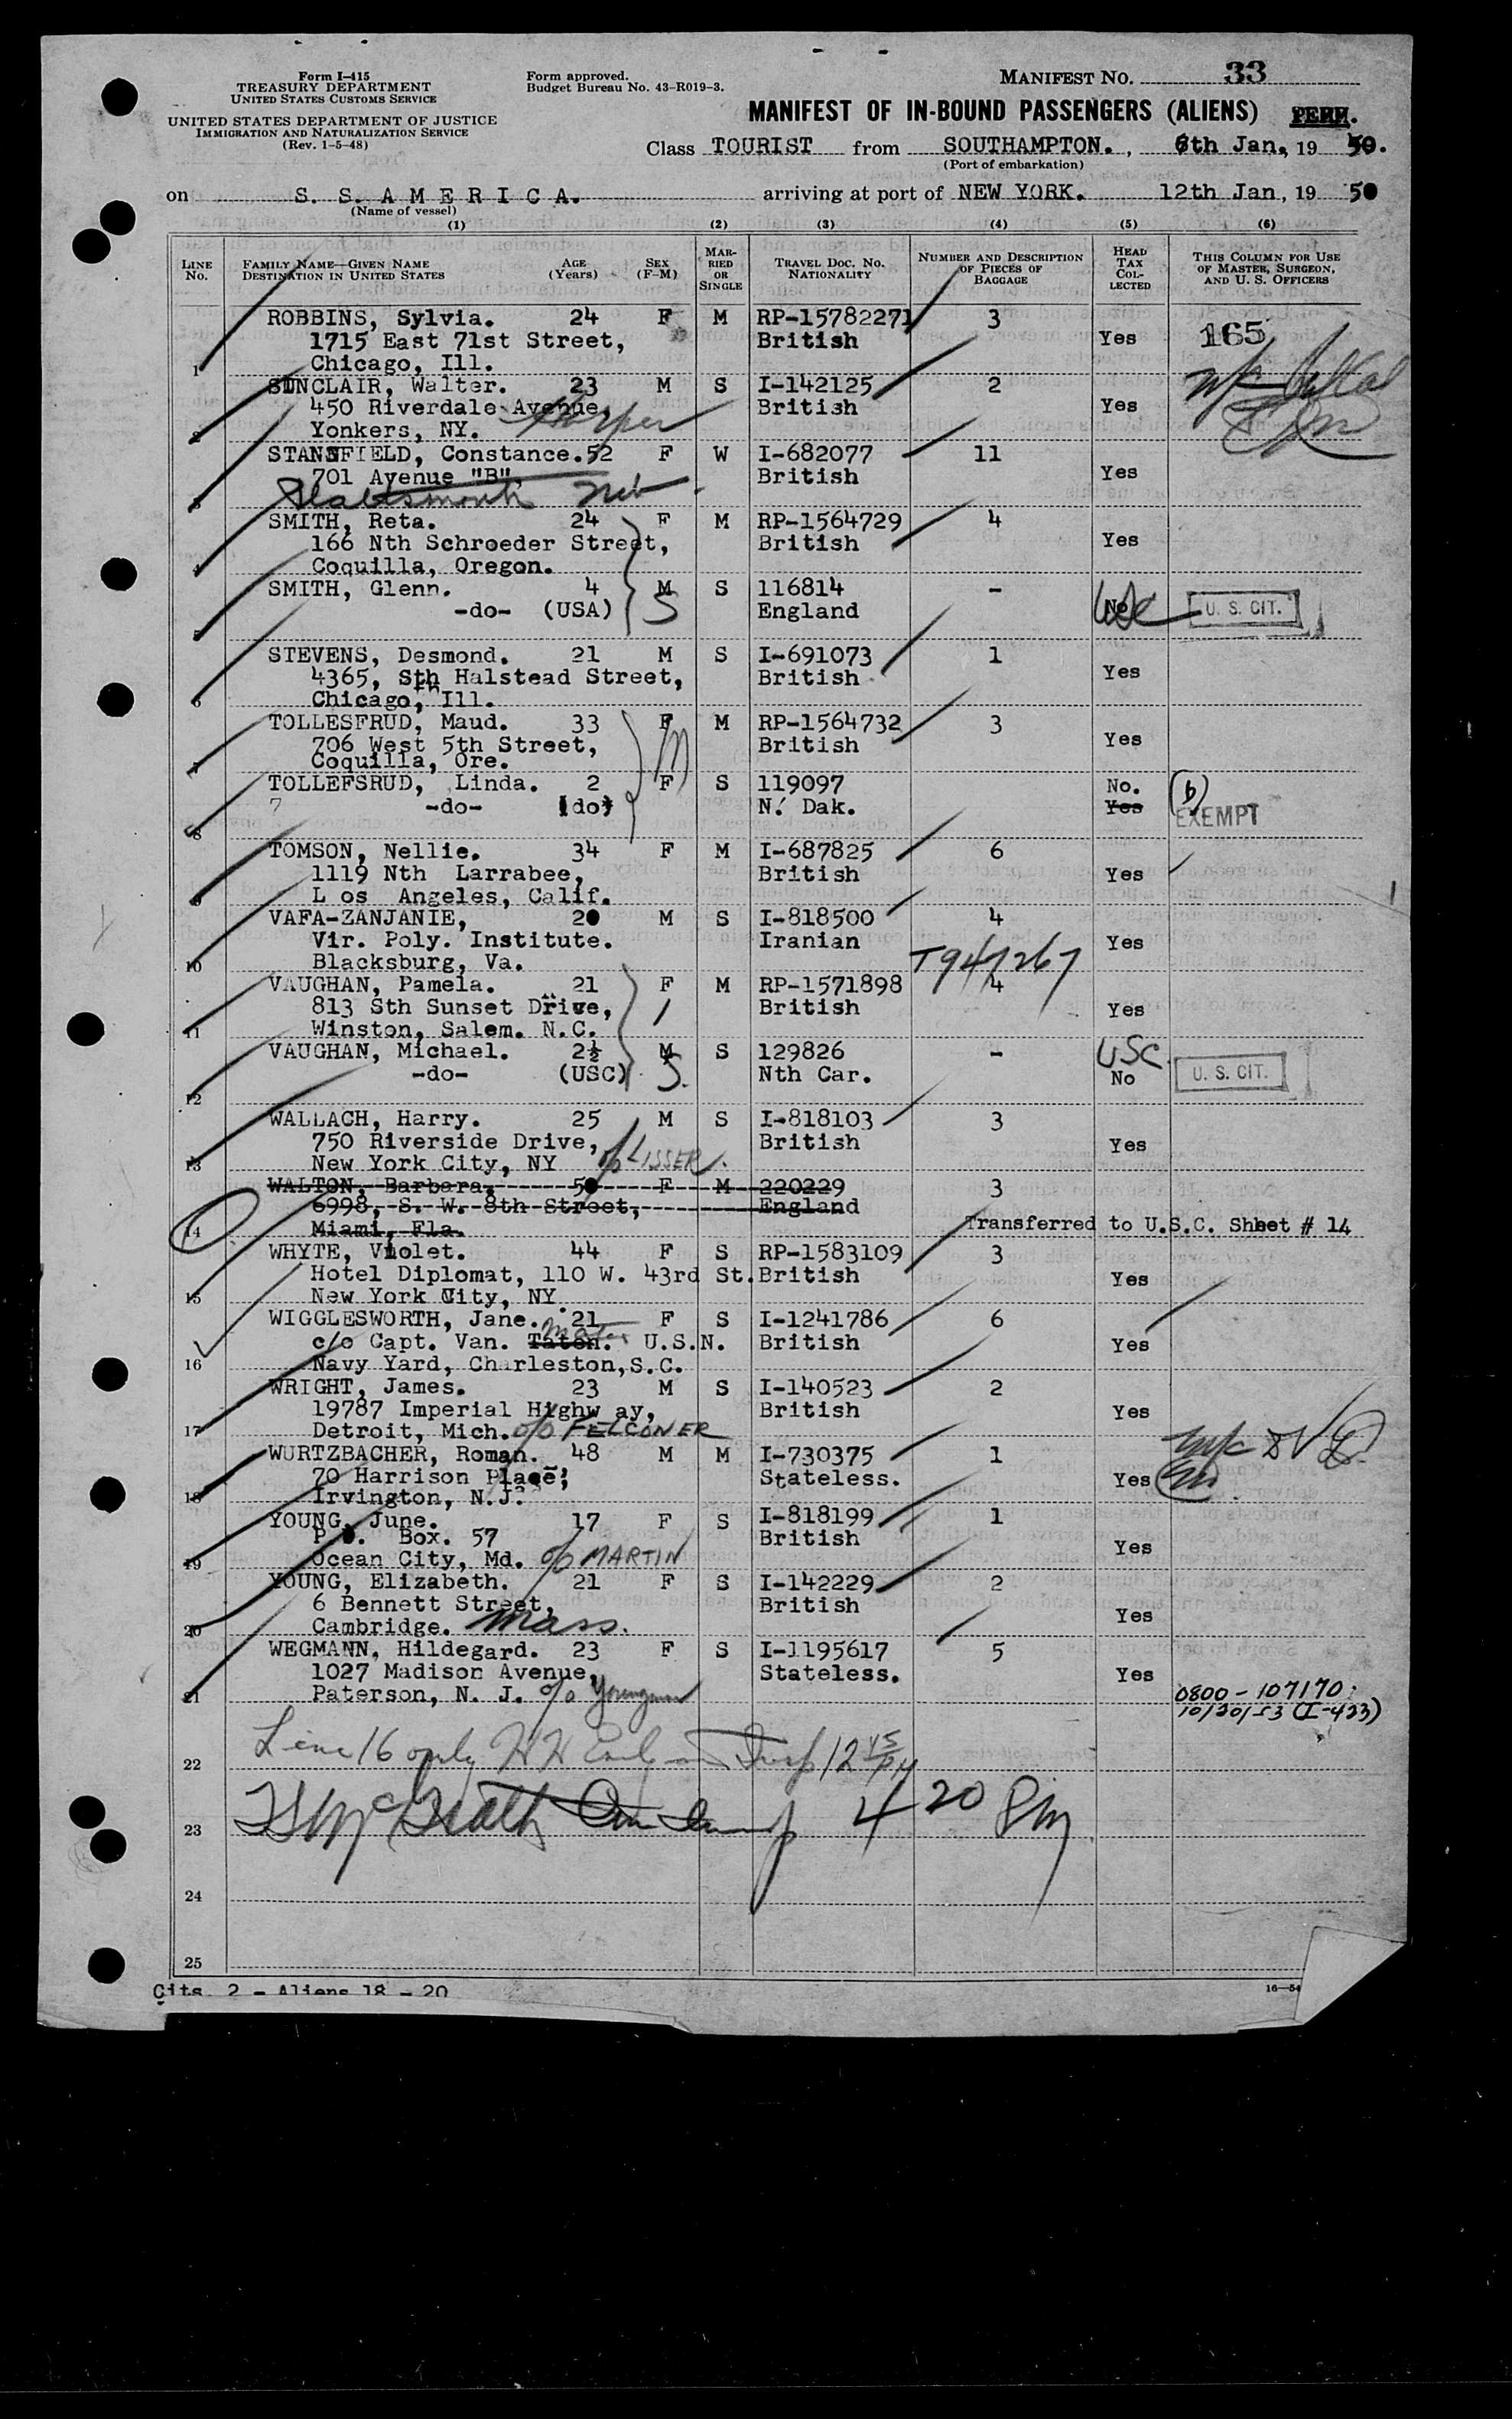 Form I-415
TREASURY DEPARTMENT
UNITED STATES CUSTOMS SERVICE
UNITED STATES DEPARTMENT OF JUSTICE
IMMIGRATION AND NATURALIZATION SERVICE
(Rev. 1-5-48)
Form approved.
Budget Bureau No. 43-R019-3.
MANIFEST NO. 33
MANIFEST OF IN-BOUND PASSENGERS (ALIENS) PERM.
Class TOURIST from SOUTHAMPTON. , 6th Jan, 19 50.
(Port of embarkation)
on S. S. A M E R I C A. arriving at port of NEW YORK. 12th Jan, 19 50
(Name of vessel)
(1) (2) (3) (4) (5) (6)
LINE No. FAMILY NAME—GIVEN NAME DESTINATION IN UNITED STATES AGE (Years) SEX (F-M) MARRIED OR SINGLE TRAVEL DOC. No. NATIONALITY NUMBER AND DESCRIPTION OF PIECES OF BAGGAGE HEAD TAX COLLECTED THIS COLUMN FOR USE OF MASTER, SURGEON, AND U. S. OFFICERS
ROBBINS, Sylvia. 24 F M RP-15782271 3
1715 East 71st Street, British Yes 165
1 Chicago, Ill.
SINCLAIR, Walter. 23 M S I-142125 2
450 Riverdale Avenue, British Yes
2 Yonkers, NY.
STANSFIELD, Constance. 52 F W I-682077 11
701 Avenue "B", British Yes
3 Plattsmouth Neb
SMITH, Reta. 24 F M RP-1564729 4
166 Nth Schroeder Street, British Yes
4 Coquilla, Oregon.
SMITH, Glenn. 4 M S 116814 -
-do- (USA) S England No USC U. S. CIT.
5
STEVENS, Desmond. 21 M S I-691073 1
4365, Sth Halstead Street, British Yes
6 Chicago, Ill.
TOLLESFRUD, Maud. 33 F M RP-1564732 3
706 West 5th Street, British Yes
7 Coquilla, Ore.
TOLLEFSRUD, Linda. 2 F S 119097 No. (b)
-do- (do) N. Dak. Yes EXEMPT
8
TOMSON, Nellie. 34 F M I-687825 6
1119 Nth Larrabee, British Yes
9 L os Angeles, Calif.
VAFA-ZANJANIE, 20 M S I-818500 4
Vir. Poly. Institute. Iranian Yes
10 Blacksburg, Va. T947267
VAUGHAN, Pamela. 21 F M RP-1571898 4
813 Sth Sunset Drive, British Yes
11 Winston, Salem. N.C.
VAUGHAN, Michael. 2½ M S 129826 - USC
-do- (USC) S. Nth Car. No U. S. CIT.
12
WALLACH, Harry. 25 M S I-818103 3
750 Riverside Drive, British Yes
13 New York City, NY c/o LISSER.
WALTON, Barbara, 50 F M 220229 3
6998, S. W. 8th Street, England
14 Miami, Fla. Transferred to U.S.C. Sheet # 14
WHYTE, Violet. 44 F S RP-1583109 3
Hotel Diplomat, 110 W. 43rd St. British Yes
15 New York City, NY.
WIGGLESWORTH, Jane. 21 F S I-1241786 6
c/o Capt. Van. Taton. U.S.N. British Yes
16 Navy Yard, Charleston, S.C.
WRIGHT, James. 23 M S I-140523 2
19787 Imperial Highw ay, British Yes
17 Detroit, Mich. c/o FELCONER
WURTZBACHER, Roman. 48 M M I-730375 1
70 Harrison Place, Stateless. Yes
18 Irvington, N.J.
YOUNG, June. 17 F S I-818199 1
P.O. Box. 57 British Yes
19 Ocean City, Md. c/o MARTIN
YOUNG, Elizabeth. 21 F S I-142229 2
6 Bennett Street, British Yes
20 Cambridge. Mass.
WEGMANN, Hildegard. 23 F S I-1195617 5
1027 Madison Avenue, Stateless. Yes
21 Paterson, N. J. c/o 0800-107170.
10/20/53 (I-423)
22 Line 16 only Insp 12 45 PM
23 McGrath 4 20 PM
24
25
Cits. 2 - Aliens 18 - 20
16—54